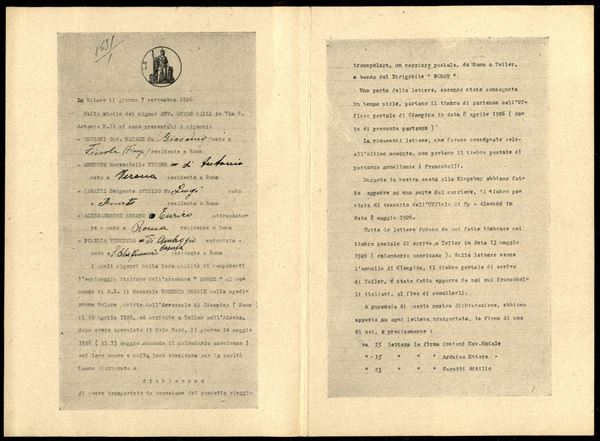 In Milano il giorno 7 settembre 1926
Nello studio del signor AVV. GUIDO in Via S.
Antonio N.11 si sono presentati i signori:
- CECIONI Cav. NATALE fu Giacomo nato a
residente a Roma
- ARDUINO Maresciallo ETTORE di Antonio
nato a Verona residente a Roma
- CARATTI Sergente ATTILIO fu Luigi nato
a residente a Roma
- ALESSANDRINI RENATO Enrico attrezzato=
re - nato a Roma residente a Roma
- POMELLA VINCENZO di motorista -
nato a residente a Roma
i quali signori nella loro qualità di componenti
l'equipaggio italiano dell'aeronave " NORGE " al co=
mando di S.E. il Generale UMBERTO NOBILE nella spedi=
zione Polare partita dall'Aeroscalo di Ciampino ( Roma
il 10 aprile 1926, ed arrivata a Teller nell'Alaska,
dopo avere sorvolato il Polo Nord, il giorno 14 maggio
1926 ( il 13 maggio secondo il calendario americano )
sul loro onore e sulla loro coscienza per la verità
hanno dichiarato e
d i c h i a r a n o
di avere trasportato in occasione del predetto viaggio
transpolare, un corriere postale, da Roma a Teller,
a bordo del Dirigibile " NORGE ".
Una parte delle lettere, essendo state consegnate
in tempo utile, portano il timbro di partenza dell'Uf=
ficio postale di Ciampino in data 8 aprile 1926 ( da=
ta di presunta partenza )
Le rimanenti lettere, che furono consegnate solo
all'ultimo momento, non portano il timbro postale di
partenza annullante i francobolli.
Durante la nostra sosta alla Kingsbay abbiamo fatto
apporre su una parte del corriere, il timbro pos=
tale di transito dell'Ufficio di Ny - Alesund in
data 8 maggio 1926.
Tutte le lettere furono da noi fatte timbrare col
timbro postale di arrivo a Teller in data 13 maggio
1926 ( calendario americano ). Sulle lettere senza
l'annullo di Ciampino, il timbro postale di arrivo
di Teller, è stato fatto apporre da noi sui francobol=
li italiani, al fine di annullarli.
A garanzia di questa nostra dichiarazione, abbiamo
apposto su ogni lettera trasportata, la firma di uno
di noi, e precisamente :
su 15 lettere la firma Cecioni Cav. Natale
" 15 " " " Arduino Ettore -
" 23 " " " Caratti Attilio